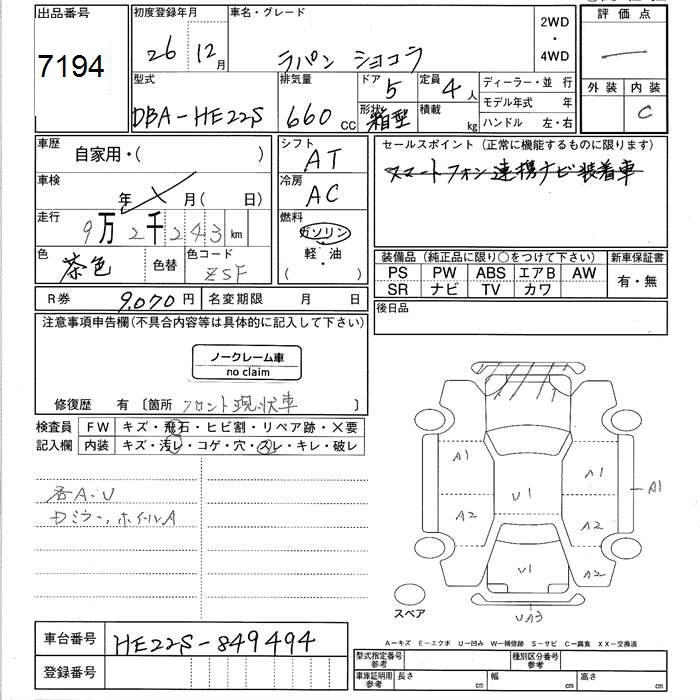 出品番号
7194
初度登録年月
26 12月
車名・グレード
ラパン ショコラ
2WD
・
4WD
評価点
―
型式
DBA-HE22S
排気量
660cc
ドア
5
形状
箱型
定員
4人
積載
kg
ディーラー・並行
モデル年式 年
ハンドル 左・右
外装 内装
C
車歴
自家用・( )
シフト
AT
車検
年 月( 日)
冷房
AC
走行
9万2千243km
燃料
ガソリン
・
軽・油
( )
色
茶色
色替
色コード
ZSF
セールスポイント(正常に機能するものに限ります)
スマートフォン連携ナビ装着車
装備品(純正品に限り○をつけて下さい)
新車保証書
PS PW ABS エアB AW
SR ナビ TV カワ
有・無
R券 9,070円
名変期限 月 日
後日品
注意事項申告欄(不具合内容等は具体的に記入して下さい)
ノークレーム車
no claim
修復歴 有 〔箇所 フロント現状車 〕
検査員
記入欄
FW キズ・飛石・ヒビ割・リペア跡・×要
内装 キズ・汚レ・コゲ・穴・スレ・キレ・破レ
各A・U
ドミラー,ホイルA
A1
A1
A1
U1
A2
A2
U1
A2
UA3
スペア
A－キズ E－エクボ U－凹み W－補修跡 S－サビ C－腐食 XX－交換済
車台番号
HE22S-849494
登録番号
型式指定番号
参考
種別区分番号
参考
車庫証明用
参考
長さ cm 幅 cm 高さ cm